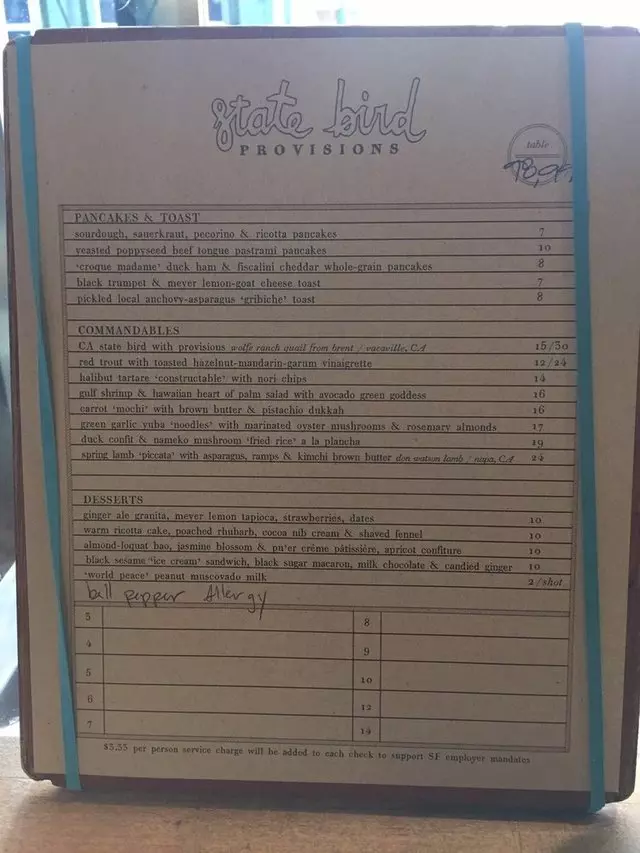 state bird
PROVISIONS
table
78,94
PANCAKES & TOAST
sourdough, sauerkraut, pecorino & ricotta pancakes 7
yeasted poppyseed beef tongue pastrami pancakes 10
'croque madame' duck ham & fiscalini cheddar whole-grain pancakes 8
black trumpet & meyer lemon-goat cheese toast 7
pickled local anchovy-asparagus 'gribiche' toast 8
COMMANDABLES
CA state bird with provisions wolfe ranch quail from brent / vacaville, CA 15/30
red trout with toasted hazelnut-mandarin-garum vinaigrette 12/24
halibut tartare 'constructable' with nori chips 14
gulf shrimp & hawaiian heart of palm salad with avocado green goddess 16
carrot 'mochi' with brown butter & pistachio dukkah 16
green garlic yuba 'noodles' with marinated oyster mushrooms & rosemary almonds 17
duck confit & nameko mushroom 'fried rice' a la plancha 19
spring lamb 'piccata' with asparagus, ramps & kimchi brown butter don watson lamb / napa, CA 24
DESSERTS
ginger ale granita, meyer lemon tapioca, strawberries, dates 10
warm ricotta cake, poached rhubarb, cocoa nib cream & shaved fennel 10
almond-loquat bao, jasmine blossom & pu'er crème pâtissière, apricot confiture 10
black sesame 'ice cream' sandwich, black sugar macaron, milk chocolate & candied ginger 10
'world peace' peanut muscovado milk 2/shot
bell pepper Allergy
3 8
4 9
5 10
6 12
7 14
$3.33 per person service charge will be added to each check to support SF employer mandates